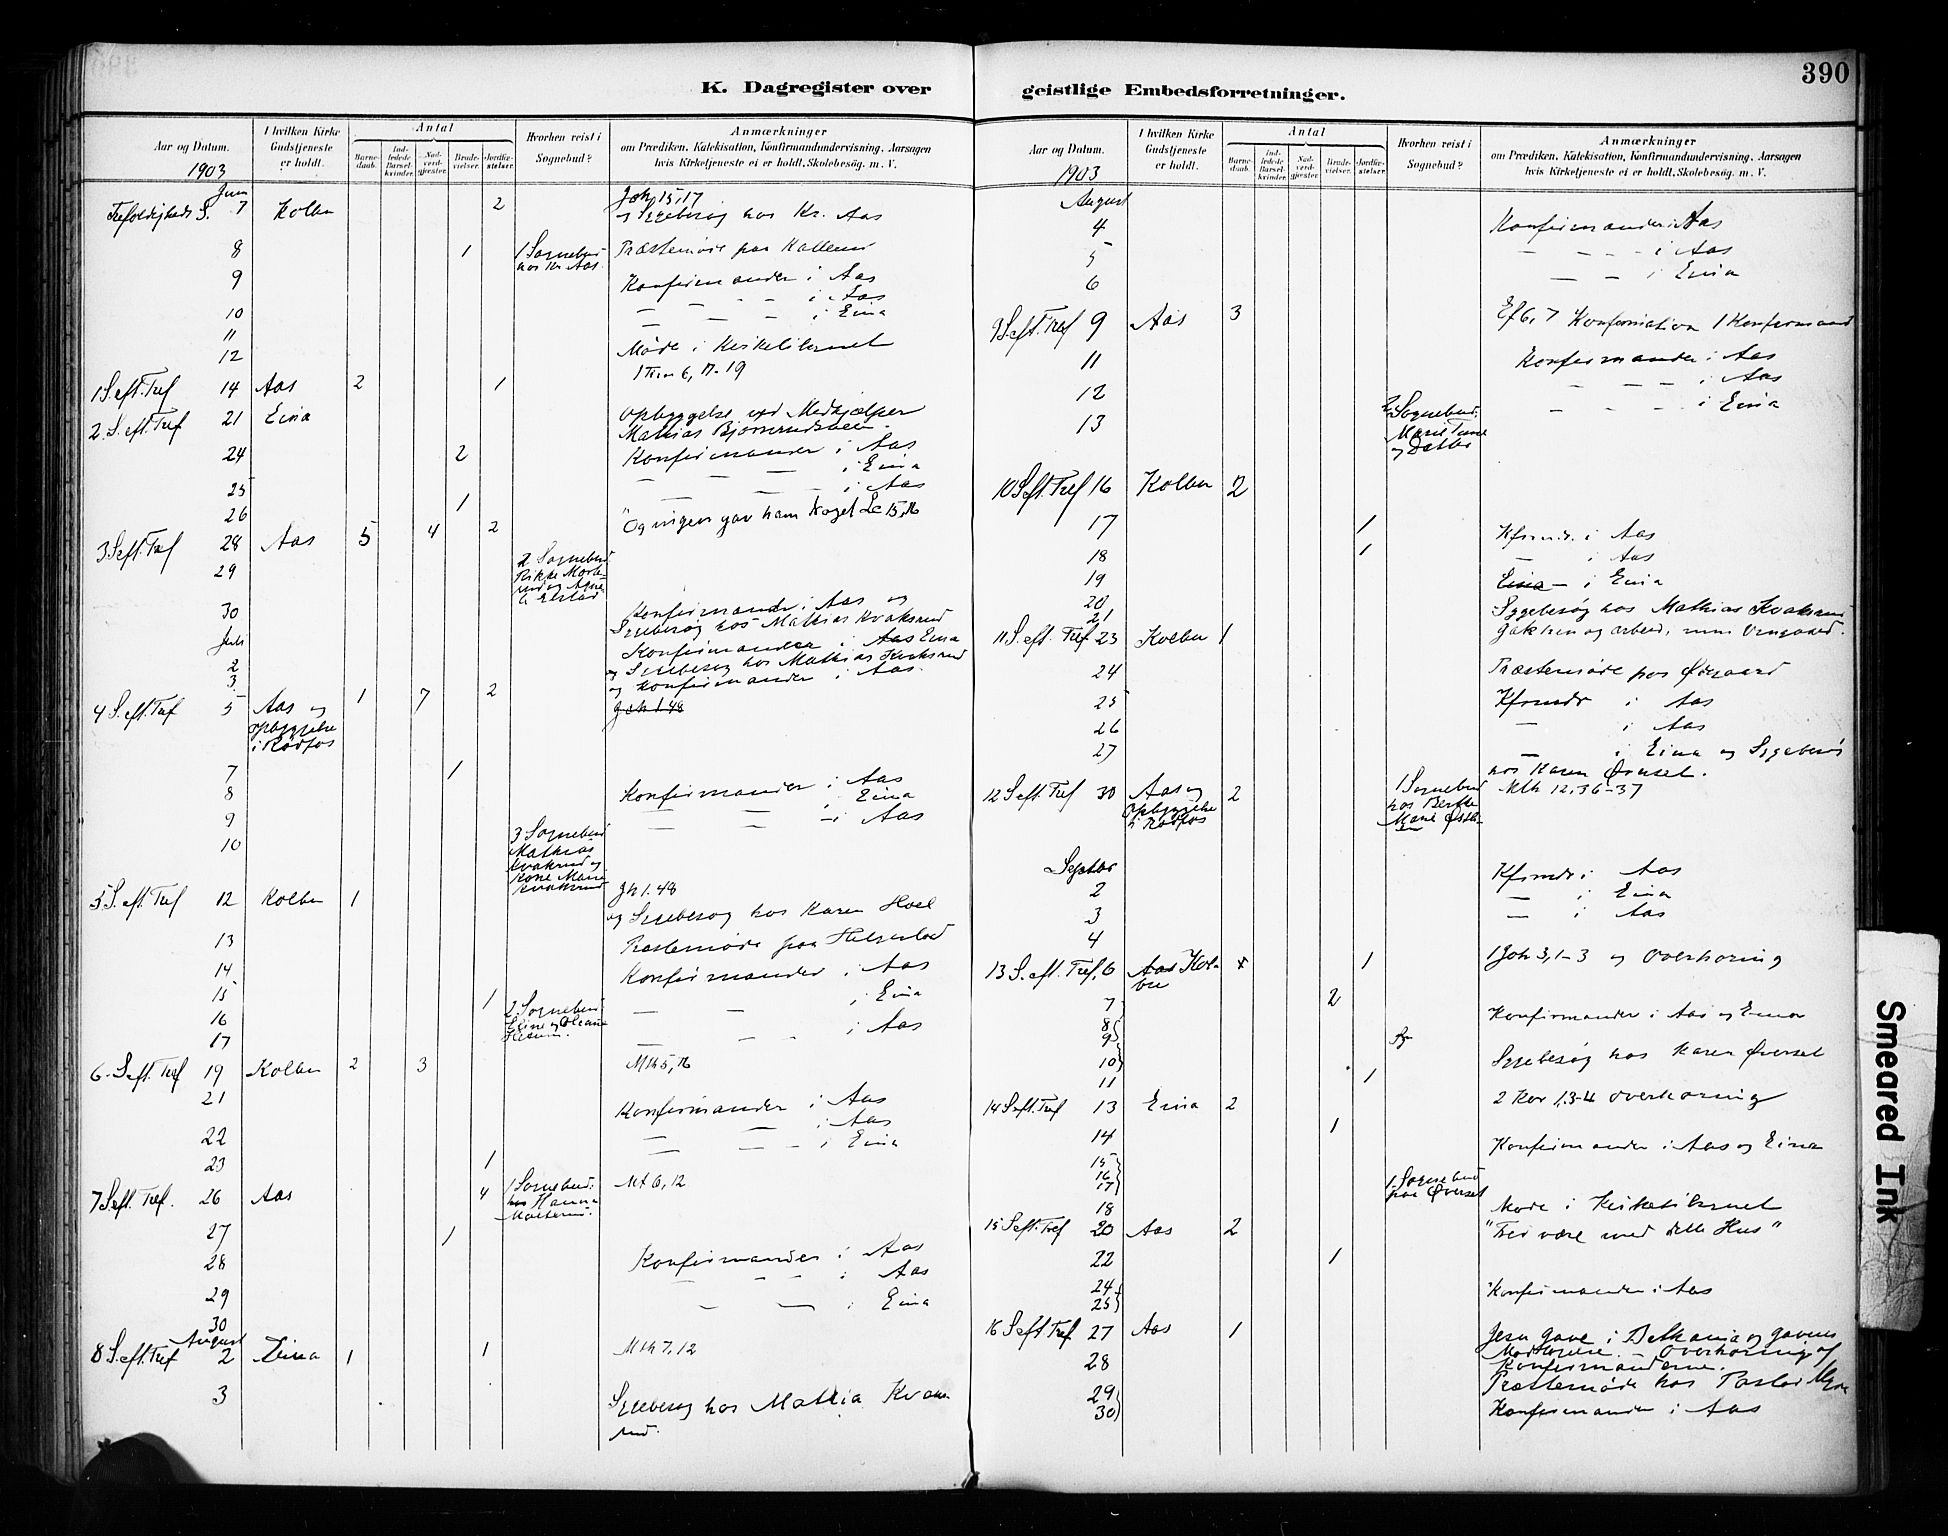 390
K. Dagregister over geistlige Embedsforretninger.
Aar og Datum.
I hvilken Kirke Gudstjeneste er holdt.
Antal
Barnedaab.
Indledede Barselkvinder.
Nadverdgjester.
Brudevielser.
Jordfæstelser.
Hvorhen reist i Sognebud?
Anmærkninger
om Prædiken, Katekisation, Konfirmandundervisning, Aarsagen
hvis Kirketjeneste ei er holdt, Skolebesøg. m. V.
1903
Juni
Joh 15,17
Trefoldigheds S. 7 Kolbu 2 og Sygebesøg hos Kr. Aas
8 1 1 Sognebud hos Kr. Aas Præstemøde paa
9 Konfirmander i Aas
10 — — — i Aas
11 — — — i Eina
12 Møde i Kirketilsynet
1 S. eft. Tref 14 Aas 2 1 1 Tim 6, 17-19
2. S. eft. Tref 21 Eina Opbyggelse ved Medhjælper
Mathias
24 2 Konfirmander i Aas
25 — — — i Eina
26 1 — — — i Aas
3 S. eft. Tref 28 Aas 5 4 2 "Og ingen gav ham Noget Lc 15,16
29 2 Sognebud Rikke
30 Konfirmander i Aas og
Sygebesøg hos Mathias Kvaksrud
Juli
2 Konfirmander i Aas Eina
3 og Sygebesøg hos Mathias Kvaksrud
og Konfirmander i Aas.
4 S. eft. Tref 5 Aas og Opbyggelse i Rødfos 1 7 2 Joh 1.48
7 1
8 Konfirmander i Aas
9 — — i Eina
10 — — i Aas
3 Sognebud Mathias Kvaksrud og Kone Marie Kvaksrud
5 S. eft. Tref 12 Kolbu 1 Jh 1.48
og Sygebesøg hos Karen Hoel
13 Præstemøde paa
14 Konfirmander i Aas
15 1 — — i Eina
16 2 Sognebud Eline og Oleane
17 — — — i Aas
6 S. eft. Tref 19 Kolbu 2 3 Mth 5,16
21 Konfirmander i Aas
22 — — i Aas
23 1 — — — i Eina
7 S. eft. Tref. 26 Aas 4 1 Sognebud hos Hanna Mt 6,12
27 1
28 Konfirmander i Aas
29 — — — i Aas
30 — — i Eina
August
8 S. eft. Tref 2 Eina 1 1 Mth 7,12
3 Sygebesøg hos Mathia Kvaksrud.
Aar og Datum.
I hvilken Kirke Gudstjeneste er holdt.
Antal
Barnedaab.
Indledede Barselkvinder.
Nadverdgjester.
Brudevielser.
Jordfæstelser.
Hvorhen reist i Sognebud?
Anmærkninger
om Prædiken, Katekisation, Konfirmandundervisning, Aarsagen
hvis Kirketjeneste ei er holdt, Skolebesøg. m. V.
1903
August
4 Konfirmander i Aas
5 — — — i Aas
6 — — i Eina
9 S. eft. Tref 9 Aas 3 Ef 6,7 Konfirmation 1 Konfirmand
11 Konfirmander i Aas
12 — — — i Aas
13 2 Sognebud: Marie og Datter — — — i Eina
10 S. eft. Tref 16 Kolbu 2
17 1 Kfrmdr. i Aas
18 1 — i Aas
19 Eina — i Eina
20 Sygebesøg hos Mathias Kvaksrud
21
11 S. eft. Tref 23 Kolbu 1
24 Præstemøde paa Ødegaard
25 Kfrmdr i Aas
26 — i Aas
27 — i Eina og Sygebesøg
hos Karen Øverset.
12 S. eft. Tref 30 Aas og Opbyggelse i Rødfos 2 1 Sognebud hos Berthe Marie Mth 12,36-37
Septbr
2 Kfrmdr i Aas
3 — i Eina
4 — i Aas
13 S. eft. Tref. 6 Aas Kolbu 4 1 1 Joh 3,1-3 og Overhøring
7 2
8 Konfirmander i Aas og Eina
9
10 Sygebesøg hos Karen Øverset
11 1
14 S. eft. Tref 13 Eina 2 2 Kor 1,3-4 Overhøring
14 1
15 Konfirmander i Aas og Eina
16
17 1 Sognebud paa Øverset
18 Møde i Kirketilsynet
15 S. eft. Tref 20 Aas 2 "Fred være med dette Hus"
22 1
24 Konfirmander i Aas
25
16 S. eft. Tref 27 Aas 1 Jesu Gave i Bethania og Gavens
Modtagere. — Overhøring af
Konfirmanderne.
28 Præstemøde hos Pastor
29 Konfirmander i Aas
30
Smeared Ink